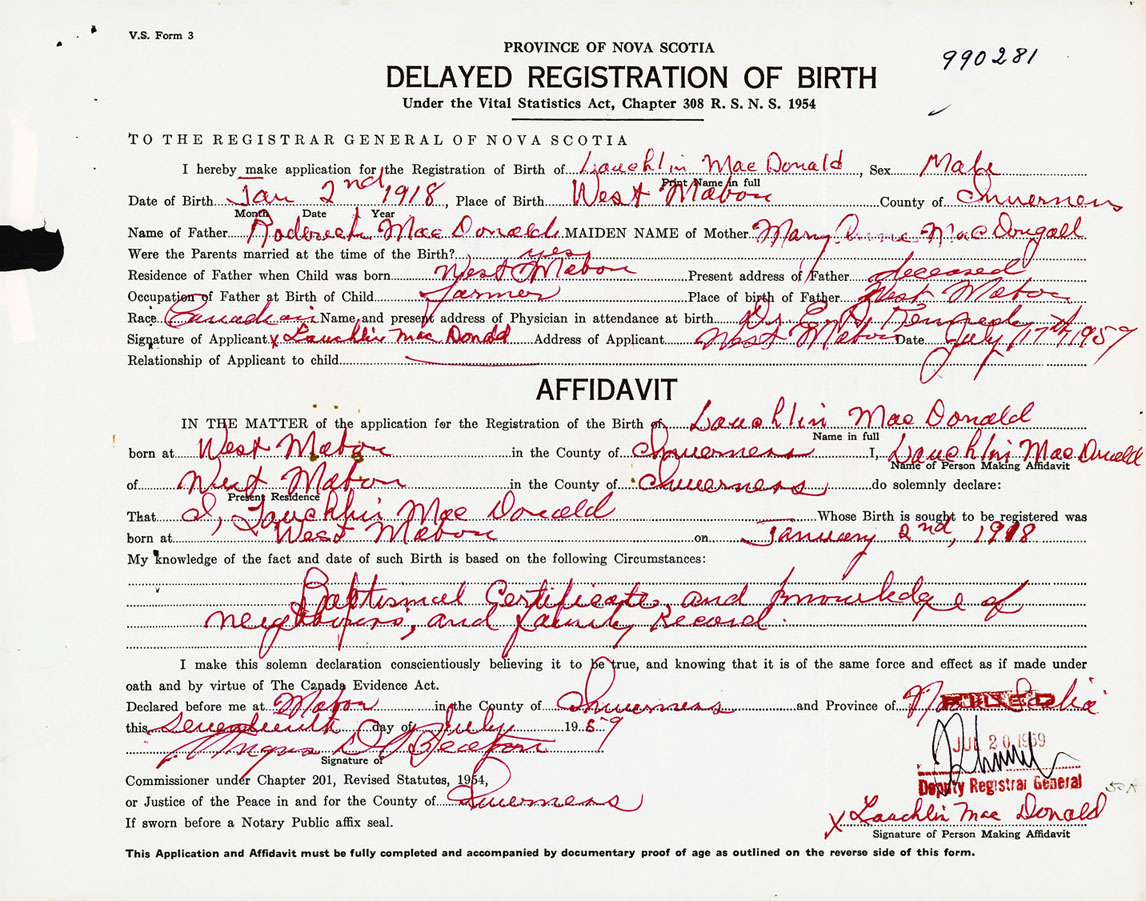 V.S. Form 3
PROVINCE OF NOVA SCOTIA
990281
DELAYED REGISTRATION OF BIRTH
Under the Vital Statistics Act, Chapter 308 R. S. N. S. 1954
TO THE REGISTRAR GENERAL OF NOVA SCOTIA
I hereby make application for the Registration of Birth of Lauchlin Mac Donald, Sex Male
Print Name in full
Date of Birth Jan 2nd 1918, Place of Birth West Mabou County of Inverness
Month Date Year
Name of Father Roderick Mac Donald MAIDEN NAME of Mother Mary Anne Mac Dougall
Were the Parents married at the time of the Birth? yes
Residence of Father when Child was born West Mabou Present address of Father deceased
Occupation of Father at Birth of Child farmer Place of birth of Father West Mabou
Race Canadian Name and present address of Physician in attendance at birth Dr. Kennedy
Signature of Applicant x Lauchlin Mac Donald Address of Applicant West Mabou Date July 17th 1959
Relationship of Applicant to child
AFFIDAVIT
IN THE MATTER of the application for the Registration of the Birth of Lauchlin Mac Donald
Name in full
born at West Mabou in the County of Inverness I, Lauchlin Mac Donald
Name of Person Making Affidavit
of West Mabou in the County of Inverness do solemnly declare:
Present Residence
That I, Lauchlin Mac Donald Whose Birth is sought to be registered was
born at West Mabou on January 2nd, 1918
My knowledge of the fact and date of such Birth is based on the following Circumstances:
Baptismal Certificate, and knowledge of
neighbours, and family Record.
I make this solemn declaration conscientiously believing it to be true, and knowing that it is of the same force and effect as if made under
oath and by virtue of The Canada Evidence Act.
Declared before me at Mabou in the County of Inverness and Province of Nova Scotia
FILED
this seventeenth day of July 1959
JUL 20 1959
Angus D Beaton
Signature of
Commissioner under Chapter 201, Revised Statutes, 1954,
Deputy Registrar General
or Justice of the Peace in and for the County of Inverness
x Lauchlin Mac Donald
If sworn before a Notary Public affix seal.
Signature of Person Making Affidavit
This Application and Affidavit must be fully completed and accompanied by documentary proof of age as outlined on the reverse side of this form.